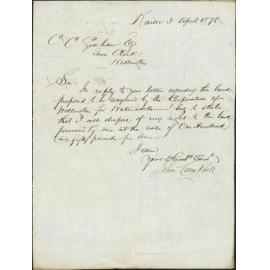 Karori 3 April 187
C. C. Graham Esq
Town Clerk
Wellington
Sir
In reply to your letter regarding the land
proposed to be acquired by the Corporation of
Wellington for Waterworks I beg to state
that I will dispose of my right to the land
possessed by me at the rate of One Hundred
and fifty pounds per acre
I am
Your Obedt Servt
John Campbell